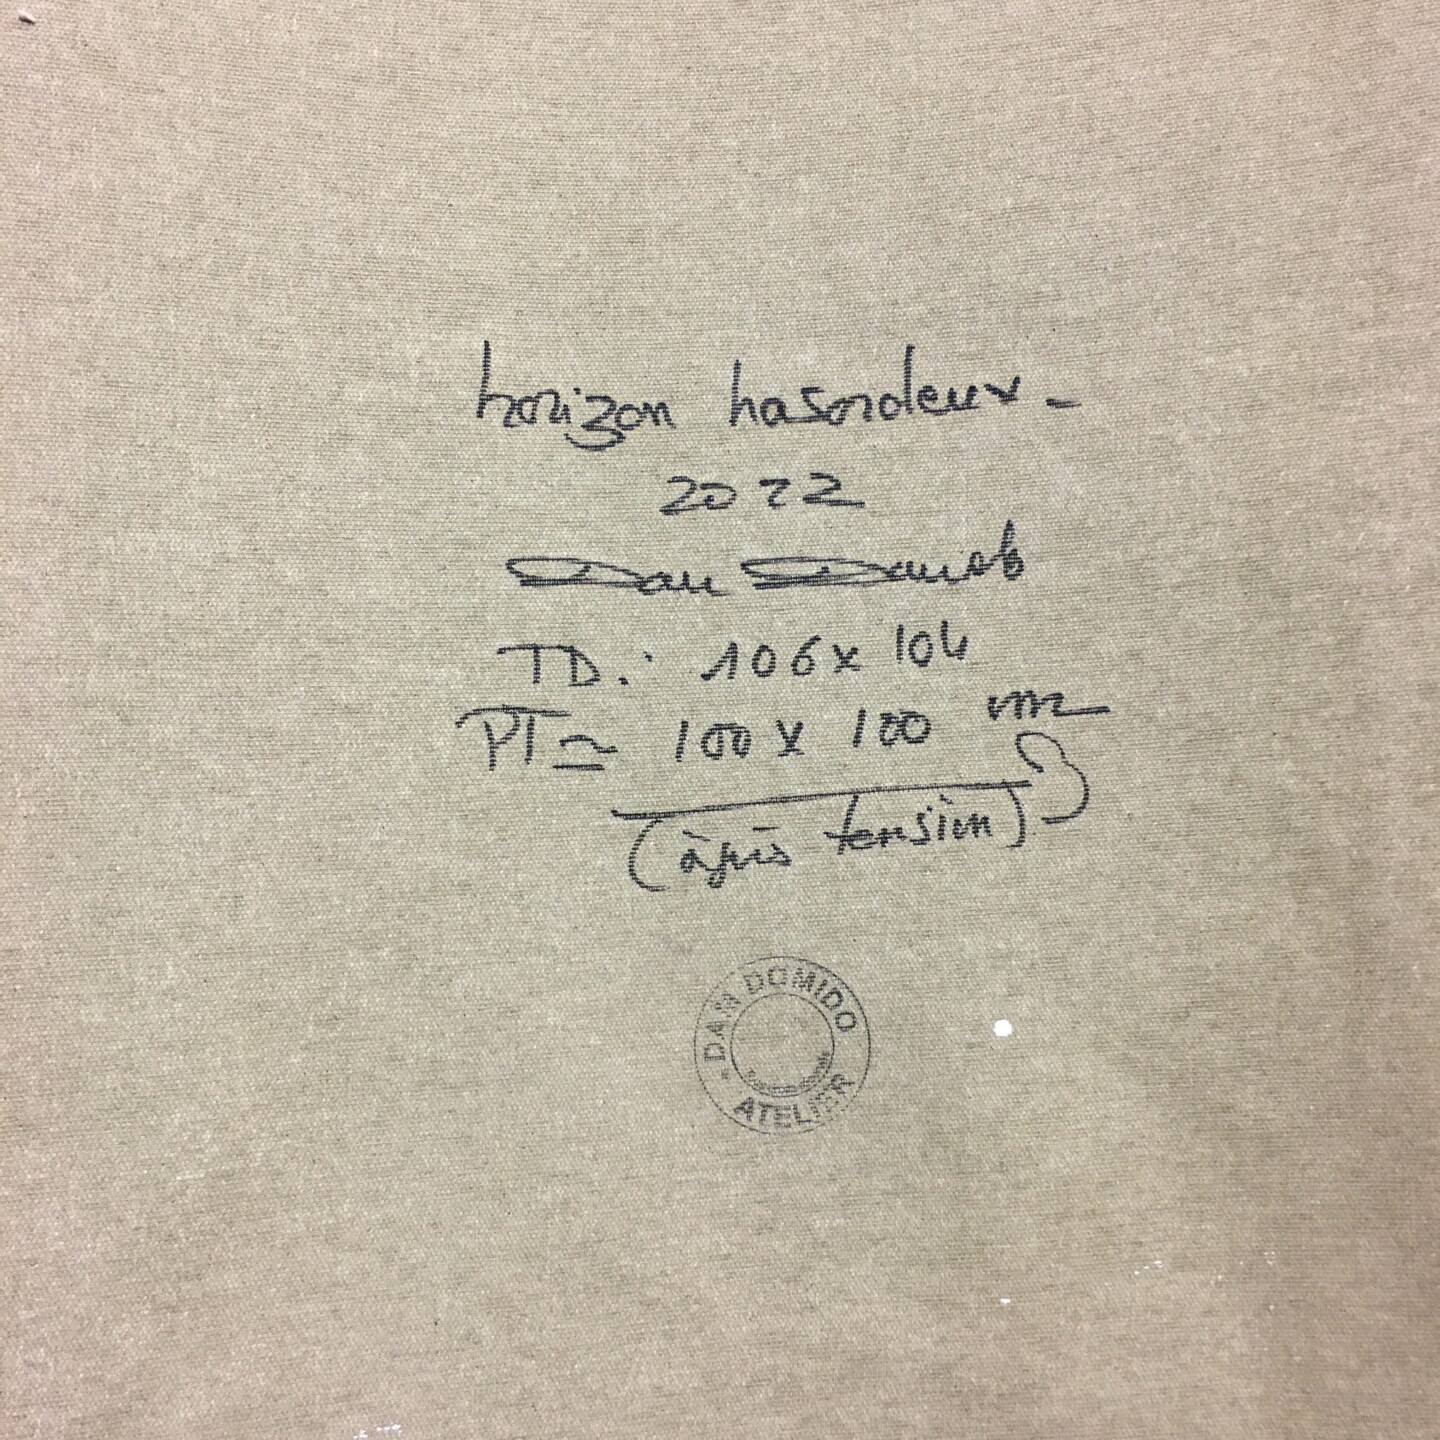 horizon hasardeux -
2022
Dan
TD. : 106 x 104
PT ≃ 100 x 100 cm
(après tension)
DAN DOMIDO
ATELIER